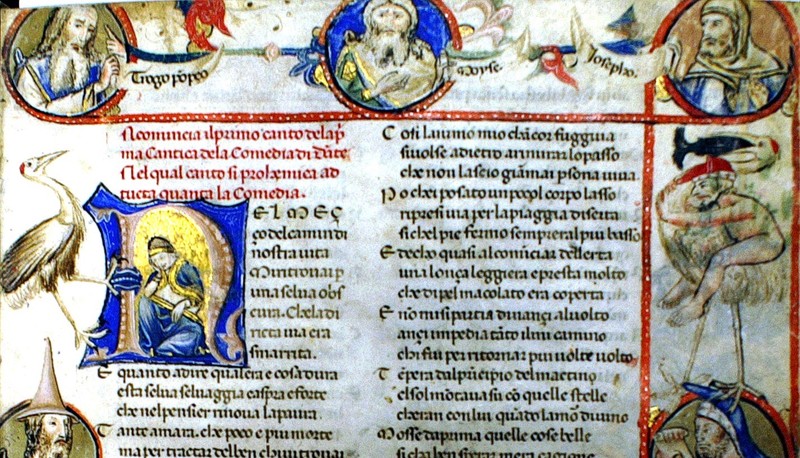 Trogo pōpeo
Moyse.
Iosepho.
Ncomincia il primo canto de la pͥ
ma Cantica de la Comedia di dāte
Nel qual canto si prohemiça ad
tucta quanta la Comedia.
NEL MEÇ
ço del camin di
nostra uita
Mi ritrouai p
una selua obs
cura. Che la di
ricta uia era
smarrita.
E quanto a dire qual era e cosa dura
esta selua seluaggia e aspra e forte
che nel pensier rinoua la paura.
T ante amara. che poco e piu morte
ma per tractar del ben chui trouai
C osi lanimo mio chācor fuggiua
si uolse adietro a rimirar lo passo
che non lascio giāmai psona uiua.
P o chei posato un poco il corpo lasso
ripresi uia per la piaggia diserta
si chel pie fermo sempre ral piu basso
E d ecko quasi al comīciar dellerta
una lonça leggiera e presta molto
che di pel macolato era coperta
E nō mi si partia dinançi al uolto
ançi impedia tāto il mi camino
chi fui per ritornar piu uolte uolto
T ēpera dal prīcipio del mactino
el sol mōtaua su cō quelle stelle
cheran con lui quādo lamor diuino
M osse da prima quelle cose belle
si cha ben sperar mera cagione